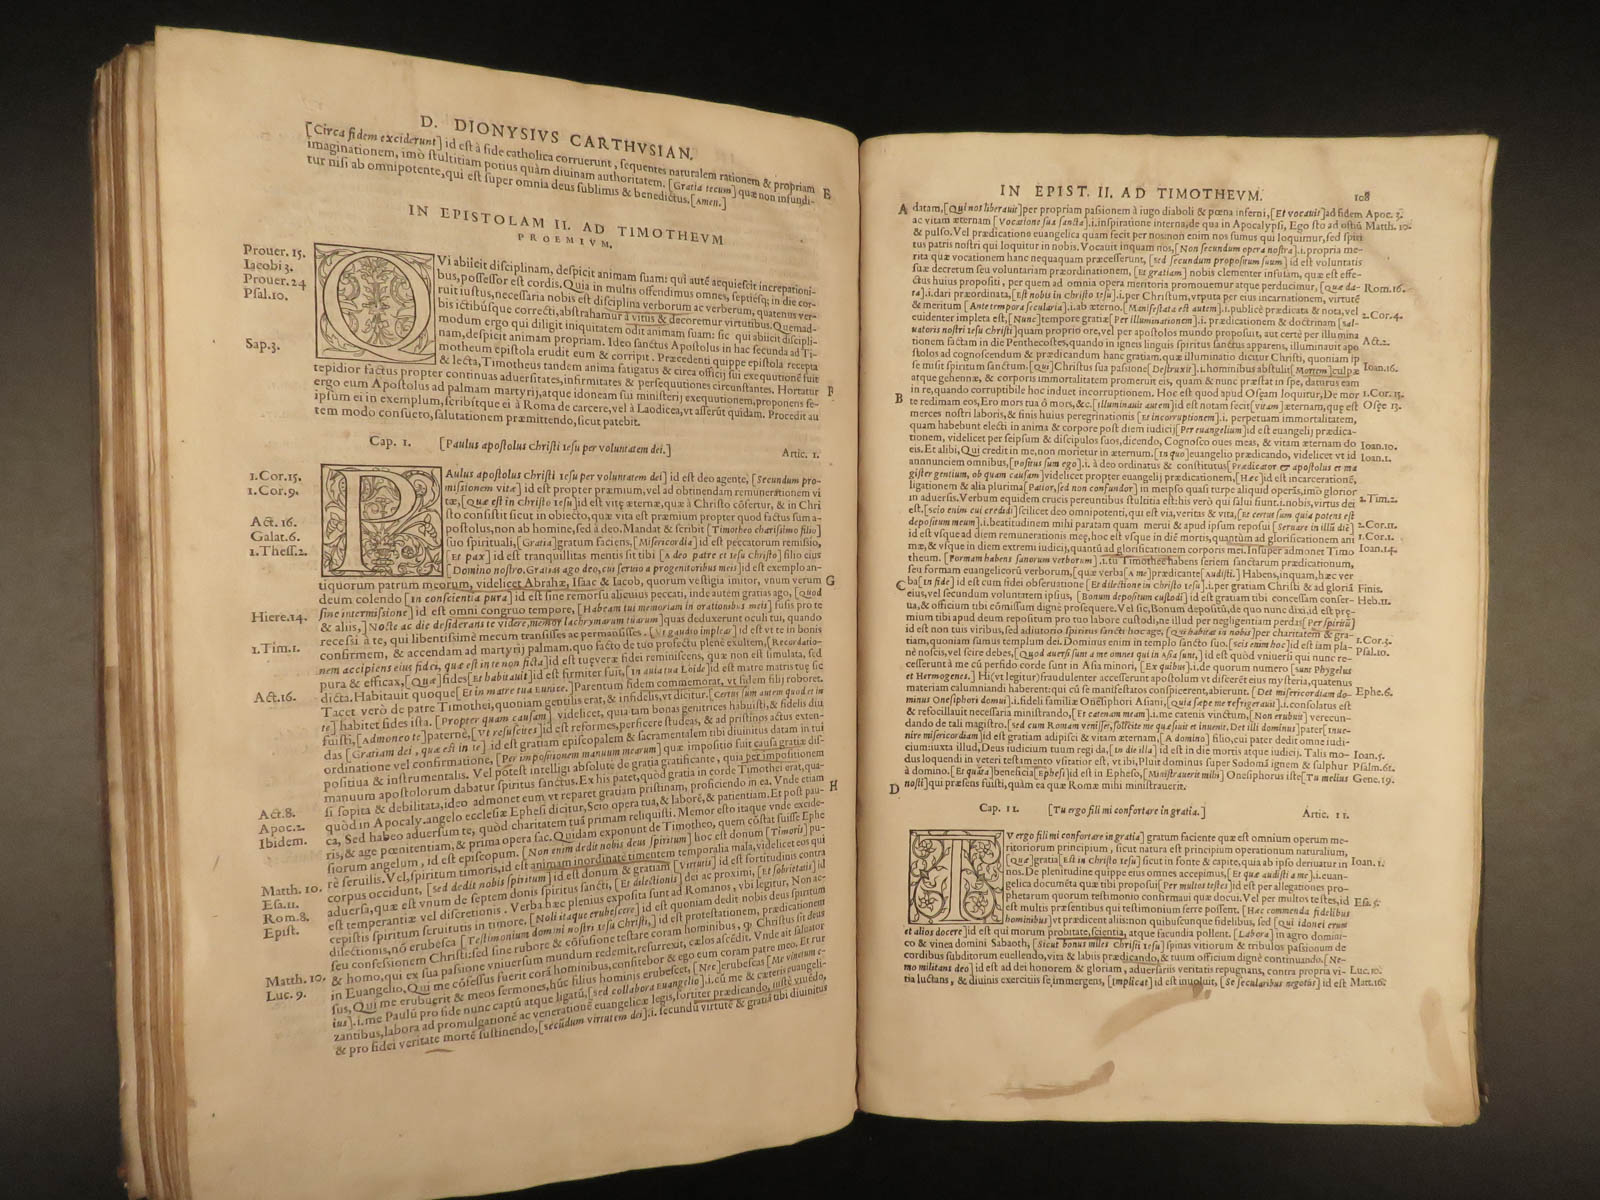 D. DIONYSIVS CARTHVSIAN.
[Circa fidem exciderunt] id est à fide catholica corruerunt, sequentes naturalem rationem & propriam
imaginationem, imò stultitiam potius quàm diuinam authoritatem. [Gratia tecum] quæ non infundi-
tur nisi ab omnipotente, qui est super omnia deus sublimis & benedictus. [Amen.]
E
IN EPISTOLAM II. AD TIMOTHEVM
PROEMIVM.
Prouer. 15.
Iacobi 3.
Prouer. 24
Psal. 10.
Sap. 3.
QVi abiicit disciplinam, despicit animam suam: qui autē acquiescit increpationi-
bus, possessor est cordis. Quia in multis offendimus omnes, septiésq; in die cor-
ruit iustus, necessaria nobis est disciplina verborum ac verberum, quatenus ver-
bis ictibúsque correcti, abstrahamur à vitiis & decoremur virtutibus. Quemad-
modum ergo qui diligit iniquitatem odit animam suam: sic qui abiicit discipli-
nam, despicit animam propriam. Ideo sanctus Apostolus in hac secunda ad Ti-
motheum epistola erudit eum & corripit. Præcedenti quippe epistola recepta
& lecta, Timotheus tandem anima fatigatus & circa officij sui exequutionē fuit
tepidior factus propter continuas aduersitates, infirmitates & persequutiones circunstantes. Hortatur
ergo eum Apostolus ad palmam martyrij, atque idoneam sui ministerij exequutionem, proponens se-
ipsum ei in exemplum, scribítque ei à Roma de carcere, vel à Laodicea, vt asserūt quidam. Procedit au
tem modo consueto, salutationem præmittendo, sicut patebit.
F
Cap. I. [Paulus apostolus Christi Iesu per voluntatem dei.] Artic. I.
1. Cor. 15.
1. Cor. 9.
Act. 16.
Galat. 6.
1. Thess. 2.
Hiere. 14.
1. Tim. 1.
Act. 16.
Act. 8.
Apoc. 2.
Ibidem.
Matth. 10.
Esa. 11.
Rom. 8.
Epist.
Matth. 10.
Luc. 9.
PAulus apostolus Christi Iesu per voluntatem dei] id est deo agente, [Secundum pro-
missionem vitæ] id est propter præmium, vel ad obtinendam remunerationem vi
tæ, [Quæ est in Christo Iesu] id est vitę æternæ, quæ à Christo cōfertur, & in Chri
sto consistit sicut in obiecto, quæ vita est præmium propter quod factus sum a-
postolus, non ab homine, sed à deo. Mandat & scribit [Timotheo charissimo filio]
suo spirituali, [Gratia] gratum faciens, [Misericordia] id est peccatorum remissio,
[Et pax] id est tranquillitas mentis sit tibi [A deo patre et Iesu Christo] filio eius
[Domino nostro. Gratias ago deo, cui seruio a progenitoribus meis] id est exemplo an-
tiquorum patrum meorum, videlicet Abrahæ, Isaac & Iacob, quorum vestigia imitor, vnum verum
deum colendo [In conscientia pura] id est sine remorsu alicuius peccati, inde autem gratias ago, [Quod
sine intermissione] id est omni congruo tempore, [Habeam tui memoriam in orationibus meis] fusis pro te
& aliis, [Nocte ac die desiderans te videre, memor lachrymarum tuarum] quas deduxerunt oculi tui, quando
recessi à te, qui libentissimè mecum transisses ac permansisses. [Vt gaudio implear] id est vt te in bonis
confirmem, & accendam ad martyrij palmam, quo facto de tuo profectu plenè exultem, [Recordatio-
nem accipiens eius fidei, quæ est in te non ficta] id est tuę veræ fidei reminiscens, quæ non est simulata, sed
pura & efficax, [Quæ] fides [Et habitauit] id est firmiter fuit, [In auia tua Loide] id est matre matris tuę sic
dicta. Habitauit quoque [Et in matre tua Eunice.] Parentum fidem commemorat, vt fidem filij roboret.
Tacet verò de patre Timothei, quoniam gentilis erat, & infidelis, vt dicitur. [Certus sum autem quod et in
te] habitet fides ista. [Propter quam causam] videlicet, quia tam bonas genitrices habuisti, & fidelis diu
fuisti, [Admoneo te] paternè, [Vt resuscites] id est reformes, perficere studeas, & ad pristinos actus exten-
das [Gratiam dei, quæ est in te] id est gratiam episcopalem & sacramentalem tibi diuinitus datam in tui
ordinatione vel confirmatione, [Per impositionem manuum mearum] quæ impositio fuit causa gratiæ dis-
positiua & instrumentalis. Vel potest intelligi absolute de gratia gratificante, quia per impositionem
manuum apostolorum dabatur spiritus sanctus. Ex his patet, quòd gratia in corde Timothei erat, qua-
si sopita & debilitata, ideo admonet eum vt reparet gratiam pristinam, proficiendo in ea. Vnde etiam
quòd in Apocaly. angelo ecclesiæ Ephesi dicitur, Scio opera tua, & laborē, & patientiam. Et post pau-
ca, Sed habeo aduersum te, quòd charitatem tuā primam reliquisti. Memor esto itaque vnde excide-
ris, & age pœnitentiam, & prima opera fac. Quidam exponunt de Timotheo, quem cōstat fuisse Ephe
siorum angelum, id est episcopum. [Non enim dedit nobis deus spiritum] hoc est donum [Timoris] pu-
rē seruilis. Vel, spiritum timoris, id est animam inordinatè timentem temporalia mala, videlicet eos qui
corpus occidunt, [Sed dedit nobis spiritum] id est donum & gratiam [Virtutis] id est fortitudinis contra
aduersa, quæ est vnum de septem donis spiritus sancti, [Et dilectionis] dei ac proximi, [Et sobrietatis] id
est temperantiæ vel discretionis. Verba hæc plenius exposita sunt ad Romanos, vbi legitur, Non ac-
cepistis spiritum seruitutis in timore, [Noli itaque erubescere] id est quoniam dedit nobis deus spiritum
dilectionis, nō erubesca [Testimonium domini nostri Iesu Christi,] id est protestationem, prædicationem
seu confessionem Christi: sed sine rubore & cōfusione testare coram hominibus, q; Christus sit deus
& homo, qui ex sua passione vniuersum mundum redemit, resurrexit, cælos ascēdit. Vnde ait saluator
in Euangelio, Qui me cōfessus fuerit corā hominibus, confitebor & ego eum coram patre meo. Et rur
sus, Qui me erubuerit & meos sermones, hūc filius hominis erubescet, [Nec] erubescas [Me vinctum e-
ius] .i. me Paulū pro fide nunc captū atque ligatū, [sed collabora Euangelio] .i. cū me & cæteris euangeli-
zantibus, labora ad promulgationē ac venerationē euangelicæ legis, fortiter prædicando, iustè viuēdo,
& pro fidei veritate mortē sustinendo, [secūdum virtutem dei] .i. secundū virtutē & gratiā tibi diuinitus
G
H
IN EPIST. II. AD TIMOTHEVM. 108
A
datam, [Qui nos liberauit] per propriam passionem à iugo diaboli & pœna inferni, [Et vocauit] ad fidem
ac vitam æternam [Vocatione sua sancta] .i. inspiratione interna, de qua in Apocalypsi, Ego sto ad ostiū
& pulso. Vel prædicatione euangelica quam fecit per nos: non enim nos sumus qui loquimur, sed spiri
tus patris nostri qui loquitur in nobis. Vocauit inquam nos, [Non secundum opera nostra] .i. propria me-
rita quæ vocationem hanc nequaquam præcesserunt, [sed secundum propositum suum] id est voluntatis
suæ decretum seu voluntariam præordinationem, [Et gratiam] nobis clementer infusam, quæ est effe-
ctus huius propositi, per quem ad omnia opera meritoria promouemur atque perducimur, [Quæ da-
ta] .i. dari præordinata, [Est nobis in Christo Iesu] .i. per Christum, vtputa per eius incarnationem, virtutē
& meritum [Ante tempora secularia] .i. ab æterno. [Manifestata est autem] .i. publicè prædicata & nota, vel
euidenter impleta est, [Nunc] tempore gratiæ [Per illuminationem] .i. prædicationem & doctrinam [sal-
uatoris nostri Iesu Christi] quam proprio ore, vel per apostolos mundo proposuit, aut certè per illumina
tionem factam in die Penthecostes, quando in igneis linguis spiritus sanctus apparens, illuminauit apo
stolos ad cognoscendum & prædicandum hanc gratiam. quæ illuminatio dicitur Christi, quoniam ip
se misit spiritum sanctum. [Qui] Christus sua passione [Destruxit] .i. hominibus abstulit [Mortem] culpæ
atque gehennæ, & corporis immortalitatem promeruit eis, quam & nunc præstat in spe, daturus eam
in re, quando corruptibile hoc induet incorruptionem. Hoc est quod apud Oseam loquitur, De mor
te redimam eos, Ero mors tua ô mors, &c. [Illuminauit autem] id est notam fecit [vitam] æternam, quę est
merces nostri laboris, & finis huius peregrinationis [Et incorruptionem] .i. perpetuam immortalitatem,
quam habebunt electi in anima & corpore post diem iudicij [Per euangelium] id est euangelij prædica-
tionem, videlicet per seipsum & discipulos suos, dicendo, Cognosco oues meas, & vitam æternam do
eis. Et alibi, Qui credit in me, non morietur in æternum. [In quo] euangelio prædicando, videlicet vt id
annnunciem omnibus, [Positus sum ego] .i. à deo ordinatus & constitutus [Prædicator & apostolus et ma
gister gentium, ob quam causam] videlicet propter euangelij prædicationem, [Hæc] id est incarcerationē,
ligationem & alia plurima [Patior, sed non confundor] in meipso quasi turpe aliquid operās, imò glorior
in aduersis. Verbum equidem crucis pereuntibus stultitia est: his verò qui salui fiunt .i. nobis, virtus dei
est. [scio enim cui credidi] scilicet deo omnipotenti, qui est via, veritas & vita, [Et certus sum quia potens est
depositum meum] .i. beatitudinem mihi paratam quam merui & apud ipsum reposui [Seruare in illū diē]
id est vsque ad diem remunerationis meę, hoc est vsque in diē mortis, quantùm ad glorificationem ani
mæ, & vsque in diem extremi iudicij, quantū ad glorificationem corporis mei. Insuper admonet Timo
theum. [Formam habens sanorum verborum] .i. tu Timothee habens seriem sanctarum prædicationum,
seu formam euangelicorū verborum, [quæ verba [A me] prædicante [Audisti.] Habens, inquam, hæc ver
ba [In fide] id est cum fidei obseruatione [Et dilectione in Christo Iesu] .i. per gratiam Christi & ad gloriā
eius, vel secundum voluntatem ipsius, [Bonum depositum custodi] id est gratiam tibi concessam conser-
ua, & officium tibi cōmissum dignè prosequere. Vel sic, Bonum depositū, de quo nunc dixi, id est pre-
mium tibi apud deum repositum pro tuo labore custodi, ne illud per negligentiam perdas [Per spiritū]
id est non tuis viribus, sed adiutorio spiritus sancti hoc age, [Qui habitat in nobis] per charitatem & gra-
tiam, quoniam sumus templum dei. Dominus enim in templo sancto suo. [scis enim hoc] id est iam pla-
nè noscis, vel scire debes, [Quod auersi sunt a me omnes qui in Asia sunt,] id est quòd vniuersi qui nunc re-
cesserunt à me cū perfido corde sunt in Asia minori, [Ex quibus] .i. de quorum numero [sunt Phygelus
et Hermogenes.] Hi (vt legitur) fraudulenter accesserunt apostolum vt discerēt eius mysteria, quatenus
materiam calumniandi haberent: qui cū se manifestatos conspicerent, abierunt. [Det misericordiam do-
minus Onesiphori domui] .i. fideli familiæ Onesiphori Asiani, [Quia sæpe me refrigerauit] .i. consolatus est
& refocillauit necessaria ministrando, [Et catenam meam] .i. me catenis vinctum, [Non erubuit] verecun-
dando de tali magistro. [sed cum Romam venisset, sollicite me quæsiuit et inuenit. Det illi dominus] pater [Inue-
nire misericordiam] id est gratiam adipisci & vitam æternam, [A domino] filio, cui pater dedit omne iudi-
cium: iuxta illud, Deus iudicium tuum regi da, [In die illa] id est in die mortis atque iudicij. Talis mo-
dus loquendi in veteri testamento vsitatior est, vt ibi, Pluit dominus super Sodomā ignem & sulphur
à domino. [Et quāta] beneficia [Ephesi] id est in Epheso, [Ministrauerit mihi] Onesiphorus iste [Tu melius
nosti] qui præsens fuisti, quàm ea quæ Romæ mihi ministrauerit.
B
C
D
Apoc. 3.
Matth. 10.
Rom. 16.
2. Cor. 4.
Act. 2.
Ioan. 16.
1. Cor. 15.
Osee 13.
Ioan. 10.
Ioan. 1.
2. Tim. 2.
2. Cor. 11.
1. Cor. 1.
Ioan. 14.
Finis.
Heb. 11.
1. Cor. 3.
Psal. 10.
Ephe. 6.
Ioan. 5.
Psalm. 61.
Gene. 19.
Cap. II. [Tu ergo fili mi confortare in gratia.] Artic. II.
TV ergo fili mi confortare in gratia] gratum faciente quæ est omnium operum me-
ritoriorum principium, sicut natura est principium operationum naturalium,
[Quæ] gratia [Est in Christo Iesu] sicut in fonte & capite, quia ab ipso deriuatur in
nos. De plenitudine quippe eius omnes accepimus, [Et quæ audisti a me] .i. euan-
gelica documēta quæ tibi proposui [Per multos testes] id est per allegationes pro-
phetarum quorum testimonio confirmaui quæ docui. Vel per multos testes, id
est multis præsentibus qui testimonium ferre possent. [Hæc commenda fidelibus
hominibus] vt prædicent aliis: non quibuscunque fidelibus, sed [Qui idonei erunt
et alios docere] id est qui morum probitate, scientia, atque facundia pollent. [Labora] in agro domini-
co & vinea domini Sabaoth, [Sicut bonus miles Christi Iesu] spinas vitiorum & tribulos passionum de
cordibus subditorum euellendo, vita & labiis prædicando, & tuum officium dignè continuando. [Ne-
mo militans deo] id est ad dei honorem & gloriam, aduersariis veritatis repugnans, contra propria vi-
tia luctans, & diuinis exercitiis se immergens, [Implicat] id est inuoluit, [Se secularibus negotiis] id est
Ioan. 1.
Esa. 5.
Luc. 10.
Matt. 16.